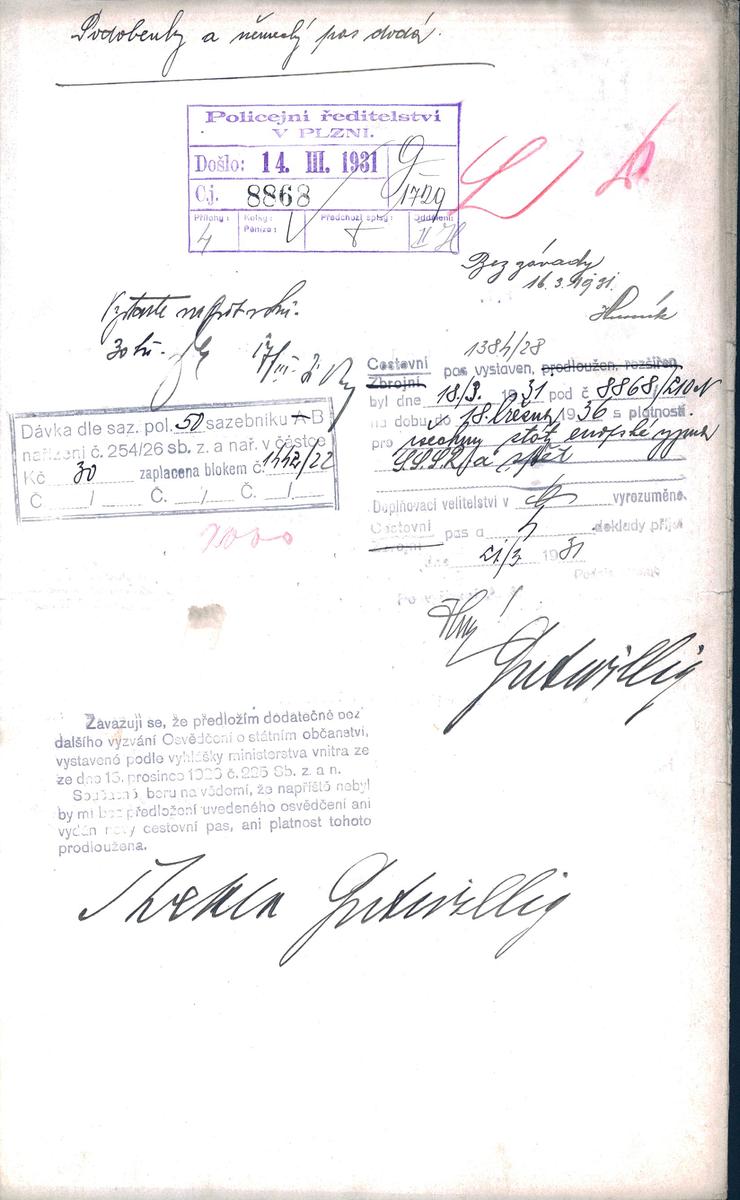 Podobenky a německý pas dodá.
Policejní ředitelství
V PLZNI.
Došlo: 14. III. 1931
Čj. 8868
9
1729
Přílohy: Kolky: Předchozí spisy: Oddělení:
Peníze:
4 II
Bez závady
16.3.1931.
Vystavte na pět roků.
30 Kč. 17/III.
1384/28
Cestovní pas vystaven, prodloužen, rozšířen
Zbrojní
byl dne 18/3. 1931 pod č 8868/
na dobu do 18. března 1936 s platností
pro všechny státy evropské vyjma
S.S.S.R. a zpět
Dávka dle saz. pol. 50 sazebníku A B
nařízení č. 254/26 sb. z. a nař. v částce
Kč 30 zaplacena blokem č. 1442/22
Č / Č. / Č. /
Doplňovací velitelství v vyrozuměno.
Cestovní pas a 4 doklady přijal
Zbrojní
dne 21/3 1931
Gutwillig
Zavazuji se, že předložím dodatečně bez
dalšího vyzvání Osvědčení o státním občanství,
vystavené podle vyhlášky ministerstva vnitra ze
ze dne 15. prosince 1926 č. 225 Sb. z. a n.
Současně beru na vědomí, že napříště nebyl
by mi bez předložení uvedeného osvědčení ani
vydán nový cestovní pas, ani platnost tohoto
prodloužena.
Thekla Gutwillig